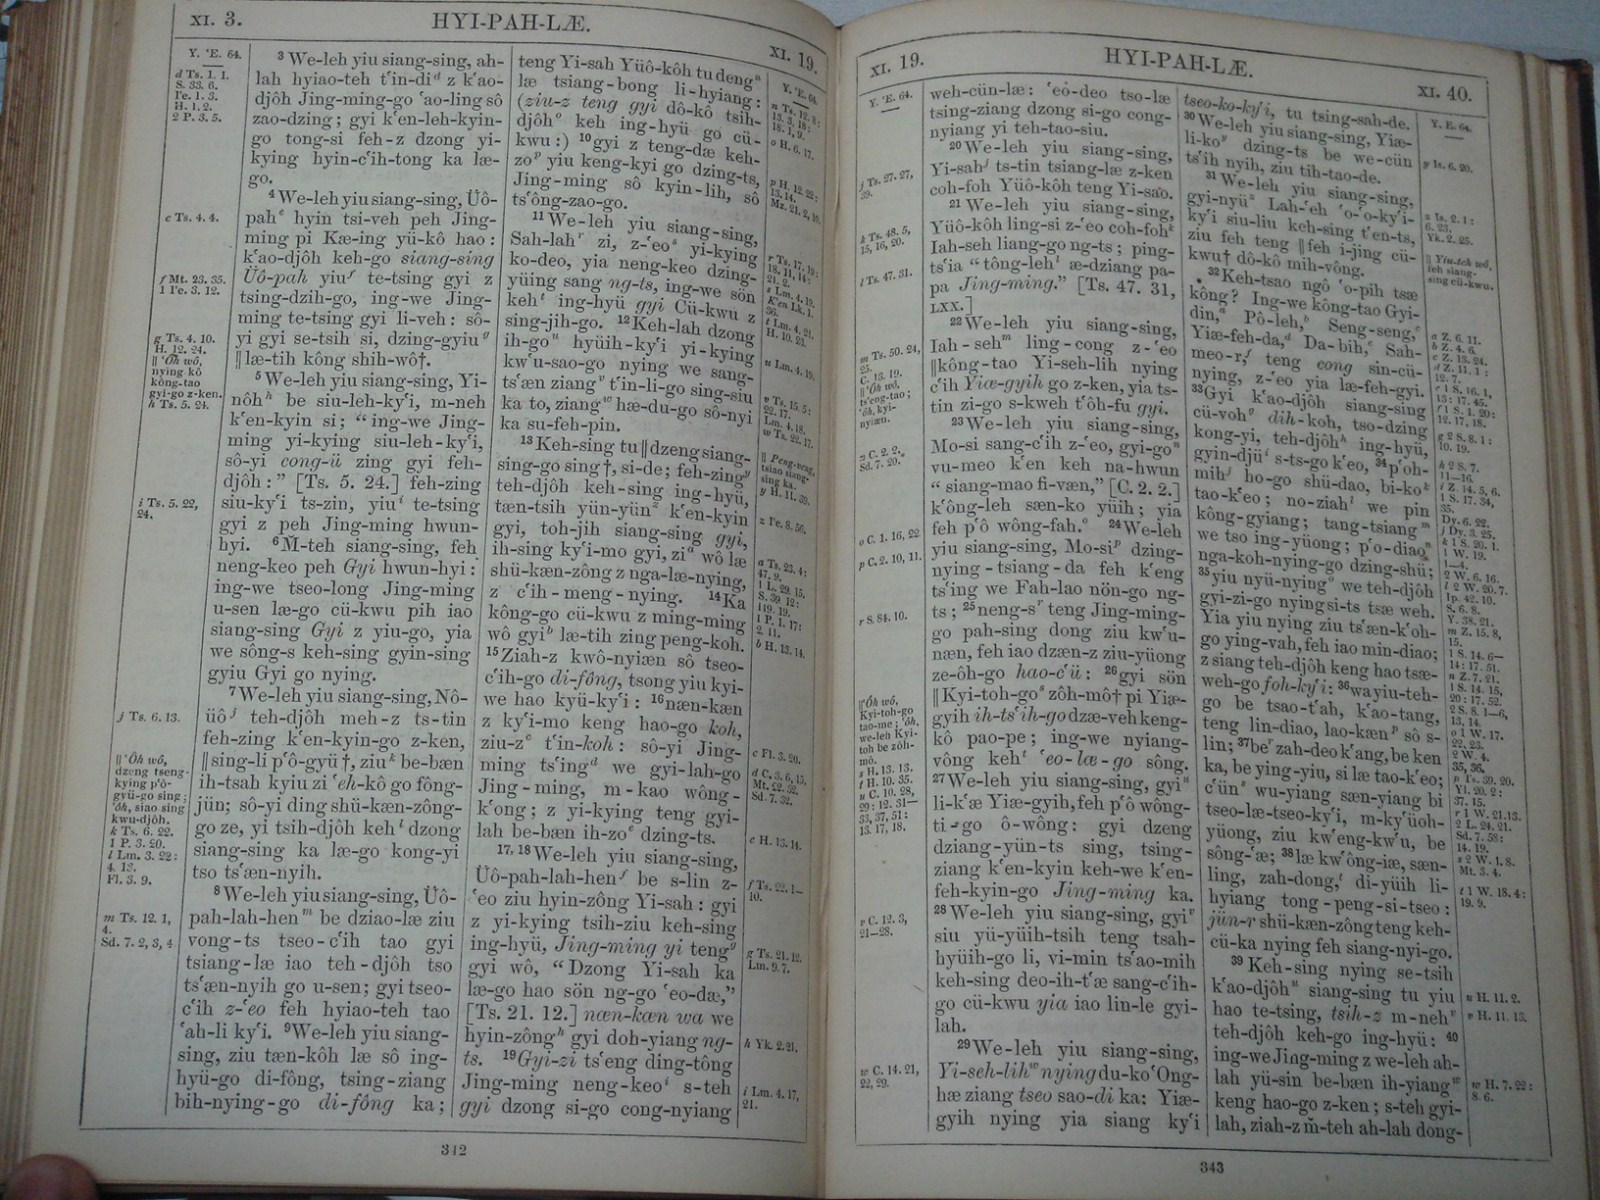 XI. 3.
HYI-PAH-LÆ.
XI. 19.
Y. ʻE. 64.
d Ts. 1. 1.
S. 33. 6.
H. 1. 2.
2 P. 3. 5.
e Ts. 4. 4.
f Mt. 23. 35.
g Ts. 4. 10.
H. 12. 24.
‖ ʻÔh wô,
nying kô
kông-tao
gyi-go z-ken.
h Ts. 5. 24.
i Ts. 5. 22,
24.
j Ts. 6. 13.
‖ ʻÔh wô,
dzeng tseng-
kying pʻô-
gyü-go sing;
ʻôh, siao sing
kwu-djôh.
k Ts. 6. 22.
1 P. 3. 20.
l Lm. 3. 22:
4. 13.
Fl. 3. 9.
m Ts. 12. 1,
4.
Sd. 7. 2, 3, 4
³ We-leh yiu siang-sing, ah-
lah hyiao-teh tʻin-diᵈ z kʻao-
djôh Jing-ming-go ʻao-ling sô
zao-dzing; gyi kʻen-leh-kyin-
go tong-si feh-z dzong yi-
kying hyin-cʻih-tong ka læ-
go.
⁴ We-leh yiu siang-sing, Üô-
pahᵉ hyin tsi-veh peh Jing-
ming pi Kæ-ing yü-kô hao:
kʻao-djôh keh-go siang-sing
Üô-pah yiuᶠ te-tsing gyi z
tsing-dzih-go, ing-we Jing-
ming te-tsing gyi li-veh: sô-
yi gyi se-tsih si, dzing-gyiuᵍ
‖læ-tih kông shih-wô†.
⁵ We-leh yiu siang-sing, Yi-
nôhʰ be siu-leh-kyʻi, m-neh
kʻen-kyin si; “ing-we Jing-
ming yi-kying siu-leh-kyʻi,
sô-yi cong-ü zing gyi feh-
djôh:” [Ts. 5. 24.] feh-zing
siu-kyʻi ts-zin, yiuⁱ te-tsing
gyi z peh Jing-ming hwun-
hyi. ⁶ M̆-teh siang-sing, feh
neng-keo peh Gyi hwun-hyi:
ing-we tseo-long Jing-ming
u-sen læ-go cü-kwu pih iao
siang-sing Gyi z yiu-go, yia
we sông-s keh-sing gyin-sing
gyiu Gyi go nying.
⁷ We-leh yiu siang-sing, Nô-
üôʲ teh-djôh meh-z ts-tin
feh-zing kʻen-kyin-go z-ken,
‖sing-li pʻô-gyü†, ziuᵏ be-bæn
ih-tsah kyiu zi ʻeh-kô go fông-
jün; sô-yi ding shü-kæn-zông-
go ze, yi tsih-djôh kehˡ dzong
siang-sing ka læ-go kong-yi
tso tsʻæn-nyih.
⁸ We-leh yiu siang-sing, Üô-
pah-lah-henᵐ be dziao-læ ziu
vong-ts tseo-cʻih tao gyi
tsiang-læ iao teh-djôh tso
tsʻæn-nyih go u-sen; gyi tseo-
cʻih z-ʻeo feh hyiao-teh tao
ʻah-li kyʻi. ⁹ We-leh yiu siang-
sing, ziu tæn-kôh læ sô ing-
hyü-go di-fông, tsing-ziang
bih-nying-go di-fông ka;
teng Yi-sah Yüô-kôh tu dengⁿ
læ tsiang-bong li-hyiang:
(ziu-z teng gyi dô-kô tsih-
djôhᵒ keh ing-hyü go cü-
kwu:) ¹⁰ gyi z teng-dæ keh-
zoᵖ yiu keng-kyi go dzing-ts,
Jing-ming sô kyin-lih, sô
tsʻông-zao-go.
¹¹ We-leh yiu siang-sing,
Sah-lahʳ zi, z-ʻeoˢ yi-kying
ko-deo, yia neng-keo dzing-
yüing sang ng-ts, ing-we sön
kehᵗ ing-hyü gyi Cü-kwu z
sing-jih-go. ¹² Keh-lah dzong
ih-goᵘ hyüih-kyʻi yi-kying
kwʻu-sao-go nying we sang-
tsʻæn ziangᵛ tʻin-li-go sing-siu
ka to, ziangʷ hæ-du-go sô-nyi
ka su-feh-pin.
¹³ Keh-sing tu‖dzeng siang-
sing-go sing†, si-de; feh-zingʸ
teh-djôh keh-sing ing-hyü,
tæn-tsih yün-yünᶻ kʻen-kyin
gyi, toh-jih siang-sing gyi,
ih-sing kyʻi-mo gyi, ziᵃ wô læ
shü-kæn-zông z nga-læ-nying,
z cʻih-meng-nying. ¹⁴ Ka
kông-go cü-kwu z ming-ming
wô gyiᵇ læ-tih zing peng-koh.
¹⁵ Ziah-z kwô-nyiæn sô tseo-
cʻih-go di-fông, tsong yiu kyi-
we hao kyü-kyʻi: ¹⁶ næn-kæn
z kyʻi-mo keng hao-go koh,
ziu-zᶜ tʻin-koh: sô-yi Jing-
ming tsʻingᵈ we gyi-lah-go
Jing-ming, m-kao wông-
kʻong; z yi-kying teng gyi-
lah be-bæn ih-zoᵉ dzing-ts.
¹⁷, ¹⁸ We-leh yiu siang-sing,
Üô-pah-lah-henᶠ be s-lin z-
ʻeo ziu hyin-zông Yi-sah: gyi
z yi-kying tsih-ziu keh-sing
ing-hyü, Jing-ming yi tengᵍ
gyi wô, “Dzong Yi-sah ka
læ-go hao sön ng-go ʻeo-dæ,”
[Ts. 21. 12.] næn-kæn wa we
hyin-zôngʰ gyi doh-yiang ng-
ts. ¹⁹ Gyi-zi tsʻeng ding-tông
Jing-ming neng-keoⁱ s-teh
gyi dzong si-go cong-nyiang
Y. ʻE. 64.
o H. 6. 17.
p H. 12. 22:
13. 14.
r Ts. 17. 19:
18. 11, 14:
21. 2.
s Lm. 4. 19.
t Lm. 4. 21.
H. 10. 23.
u Lm. 4. 19.
v Ts. 15. 5:
22. 17.
Lm. 4. 18.
w Ts. 22. 17.
‖ Peng-veng,
tsiao siang-
sing ka.
y H. 11. 39.
z Fe. 8. 56.
a Ts. 23. 4:
47. 9.
1 L. 29. 15.
S. 39. 12:
119. 19.
1 P. 1. 17:
2. 11.
b H. 13. 14.
c Fl. 3. 20.
d C. 3. 6, 15.
Mt. 22. 32.
Sd. 7. 32.
e H. 13. 14.
f Ts. 22. 1—
10.
g Ts. 21. 12.
Lm. 9. 7.
h Yk. 2. 21.
i Lm. 4. 17,
21.
312
XI. 19.
HYI-PAH-LÆ.
XI. 40.
Y. ʻE. 64.
j Ts. 27. 27,
39.
k Ts. 48. 5,
15, 16, 20.
l Ts. 47. 31.
m Ts. 50. 24,
25.
C. 13. 19.
‖ ʻÔh wô,
tsʻeng-tao;
ʻôh, kyi-
nyiæn.
n C. 2. 2.
Sd. 7. 20.
o C. 1. 16, 22
p C. 2. 10, 11.
r S. 84. 10.
‖ ʻÔh wô,
Kyi-toh-go
tao-me; ʻôh,
we-leh Kyi-
toh be zôh-
mô.
s H. 13. 13.
t H. 10. 35.
u C. 10. 28,
29: 12. 31—
33, 37, 51:
13. 17, 18.
v C. 12. 3,
21—28.
w C. 14. 21,
22, 29.
weh-cün-læ: ʻeô-deo tso-læ
tsing-ziang dzong si-go cong-
nyiang yi teh-tao-siu.
²⁰ We-leh yiu siang-sing,
Yi-sahʲ ts-tin tsiang-læ z-ken
coh-foh Yüô-kôh teng Yi-saʻo.
²¹ We-leh yiu siang-sing,
Yüô-kôh ling-si z-ʻeo coh-fohᵏ
Iah-seh liang-go ng-ts; ping-
tsʻia “tông-lehˡ æ-dziang pa-
pa Jing-ming.” [Ts. 47. 31,
LXX.]
²² We-leh yiu siang-sing,
Iah-sehᵐ ling-cong z-ʻeo
‖kông-tao Yi-seh-lih nying
cʻih Yiæ-gyih go z-ken, yia ts-
tin zi-go s-kweh tʻôh-fu gyi.
²³ We-leh yiu siang-sing,
Mo-si sang-cʻih z-ʻeo, gyi-goⁿ
vu-meo kʻen keh na-hwun
“siang-mao fi-væn,” [C. 2. 2.]
kʻông-leh sæn-ko yüih; yia
feh pʻô wông-fah.ᵒ ²⁴ We-leh
yiu siang-sing, Mo-siᵖ dzing-
nying-tsiang-da feh kʻeng
tsʻing we Fah-lao nön-go ng-
ts; ²⁵ neng-sʳ teng Jing-ming-
go pah-sing dong ziu kwʻu-
næn, feh iao dzæn-z ziu-yüong
ze-ôh-go hao-cʻü: ²⁶ gyi sön
‖Kyi-toh-goˢ zôh-môt pi Yiæ-
gyih ih-tsʻih-go dzæ-veh keng-
kô pao-pe; ing-we nyiang-
vông kehᵗ ʻeo-læ-go sông.
²⁷ We-leh yiu siang-sing, gyiᵘ
li-kʻæ Yiæ-gyih, feh pʻô wông-
ti-go ô-wông: gyi dzeng
dziang-yün-ts sing, tsing-
ziang kʻen-kyin keh-we kʻen-
feh-kyin-go Jing-ming ka.
²⁸ We-leh yiu siang-sing, gyiᵛ
siu yü-yüih-tsih teng tsah-
hyüih-go li, vi-min tsʻao-mih
keh-sing deo-ih-tʻæ sang-cʻih-
go cü-kwu yia iao lin-le gyi-
lah.
²⁹ We-leh yiu siang-sing,
Yi-seh-lihʷ nying du-ko ʻOng-
hæ ziang tseo sao-di ka: Yiæ-
gyih nying yia siang kyʻi
tseo-ko-kyʻi, tu tsing-sah-de.
³⁰ We-leh yiu siang-sing, Yiæ-
li-koʸ dzing-ts be we-cün
tsʻih nyih, ziu tih-tao-de.
³¹ We-leh yiu siang-sing,
gyi-nyüᶻ Lah-ʻeh ʻo-ʻo-kyʻi-
kyʻi siu-liu keh-sing tʻen-ts,
ziu feh teng ‖feh i-jing cü-
kwu† dô-kô mih-vông.
³² Keh-tsao ngô ʻo-pih tsæ
kông? Ing-we kông-tao Gyi-
din,ᵃ Pô-leh,ᵇ Seng-seng,ᶜ
Yiæ-feh-da,ᵈ Da-bih,ᵉ Sah-
meo-r,ᶠ teng cong sin-cü-
nying, z-ʻeo yia læ-feh-gyi.
³³ Gyi kʻao-djôh siang-sing
cü-vohᵍ dih-koh, tso-dzing
kong-yi, teh-djôhʰ ing-hyü,
gyin-djüⁱ s-ts-go kʻeo, ³⁴ pʻoh-
mihʲ ho-go shü-dao, bi-koᵏ
tao-kʻeo; no-ziahˡ we pin
kông-gyiang; tang-tsiangᵐ
we tso ing-yüong; pʻo-diaoⁿ
nga-koh-nying-go dzing-shü;
³⁵ yiu nyü-nyingᵒ we teh-djôh
gyi-zi-go nying si-ts tsæ weh.
Yia yiu nying ziu tsʻæn-kʻoh-
go ying-vah, feh iao min-diao;
z siang teh-djôh keng hao tsæ-
weh-go foh-kyʻi: ³⁶ wa yiu-teh-
go be tsao-tʻah, kʻao-tang,
teng lin-diao, lao-kænᵖ sô s-
lin; ³⁷ beʳ zah-deo kʻang, be ken
ka, be ying-yiu, si læ tao-kʻeo;
cʻünˢ wu-yiang sæn-yiang bi
tseo-læ-tseo-kyʻi, m-kyʻüoh-
yüong, ziu kwʻeng-kwʻu, be
sông-ʻæ; ³⁸ læ kwʻông-iæ, sæn-
ling, zah-dong,ᵗ di-yüih li-
hyiang tong-peng-si-tseo:
jün-r shü-kæn-zông teng keh-
cü-ka nying feh siang-nyi-go.
³⁹ Keh-sing nying se-tsih
kʻao-djôhᵘ siang-sing tu yiu
hao te-tsing, tsih-z m-nehᵛ
teh-djôh keh-go ing-hyü: ⁴⁰
ing-we Jing-ming z we-leh ah-
lah yü-sin be-bæn ih-yiangʷ
keng hao-go z-ken; s-teh gyi-
lah, ziah-z m̆-teh ah-lah dong-
Y. ʻE. 64.
y Is. 6. 20.
z Is. 2. 1:
6. 23.
Yk. 2. 25.
‖ Yiu-teh wô,
feh siang-
sing cü-kwu.
a Z. 6. 11.
b Z. 4. 6.
c Z. 13. 24.
d Z. 11. 1:
12. 7.
e 1 S. 16. 1,
13: 17. 45.
f 1 S. 1. 20:
12. 17, 18.
g 2 S. 8. 1:
10. 19.
h 2 S. 7.
11—16.
i Z. 14. 5, 6.
1 S. 17. 34,
35.
Dy. 6. 22.
j Dy. 3. 25.
k 1 S. 20. 1.
1 W. 19.
1—4.
2 W. 6. 16.
l 2 W. 20. 7.
S. 6. 8.
m Z. 15. 8,
15.
1 S. 14. 6—
14: 17. 51.
n Z. 7. 21.
1 S. 14. 15,
20: 17. 52.
2 S. 8. 1—6,
13, 14.
o 1 W. 17.
22, 23.
2 W. 4.
35, 36.
r 1 W. 21. 13.
2 L. 24. 21.
Sd. 7. 58:
14. 19.
s 2 W. 1. 8.
Mt. 3. 4.
t 1 W. 18. 4:
19. 9.
u H. 11. 2.
v H. 11. 13.
w H. 7. 22:
8. 6.
343